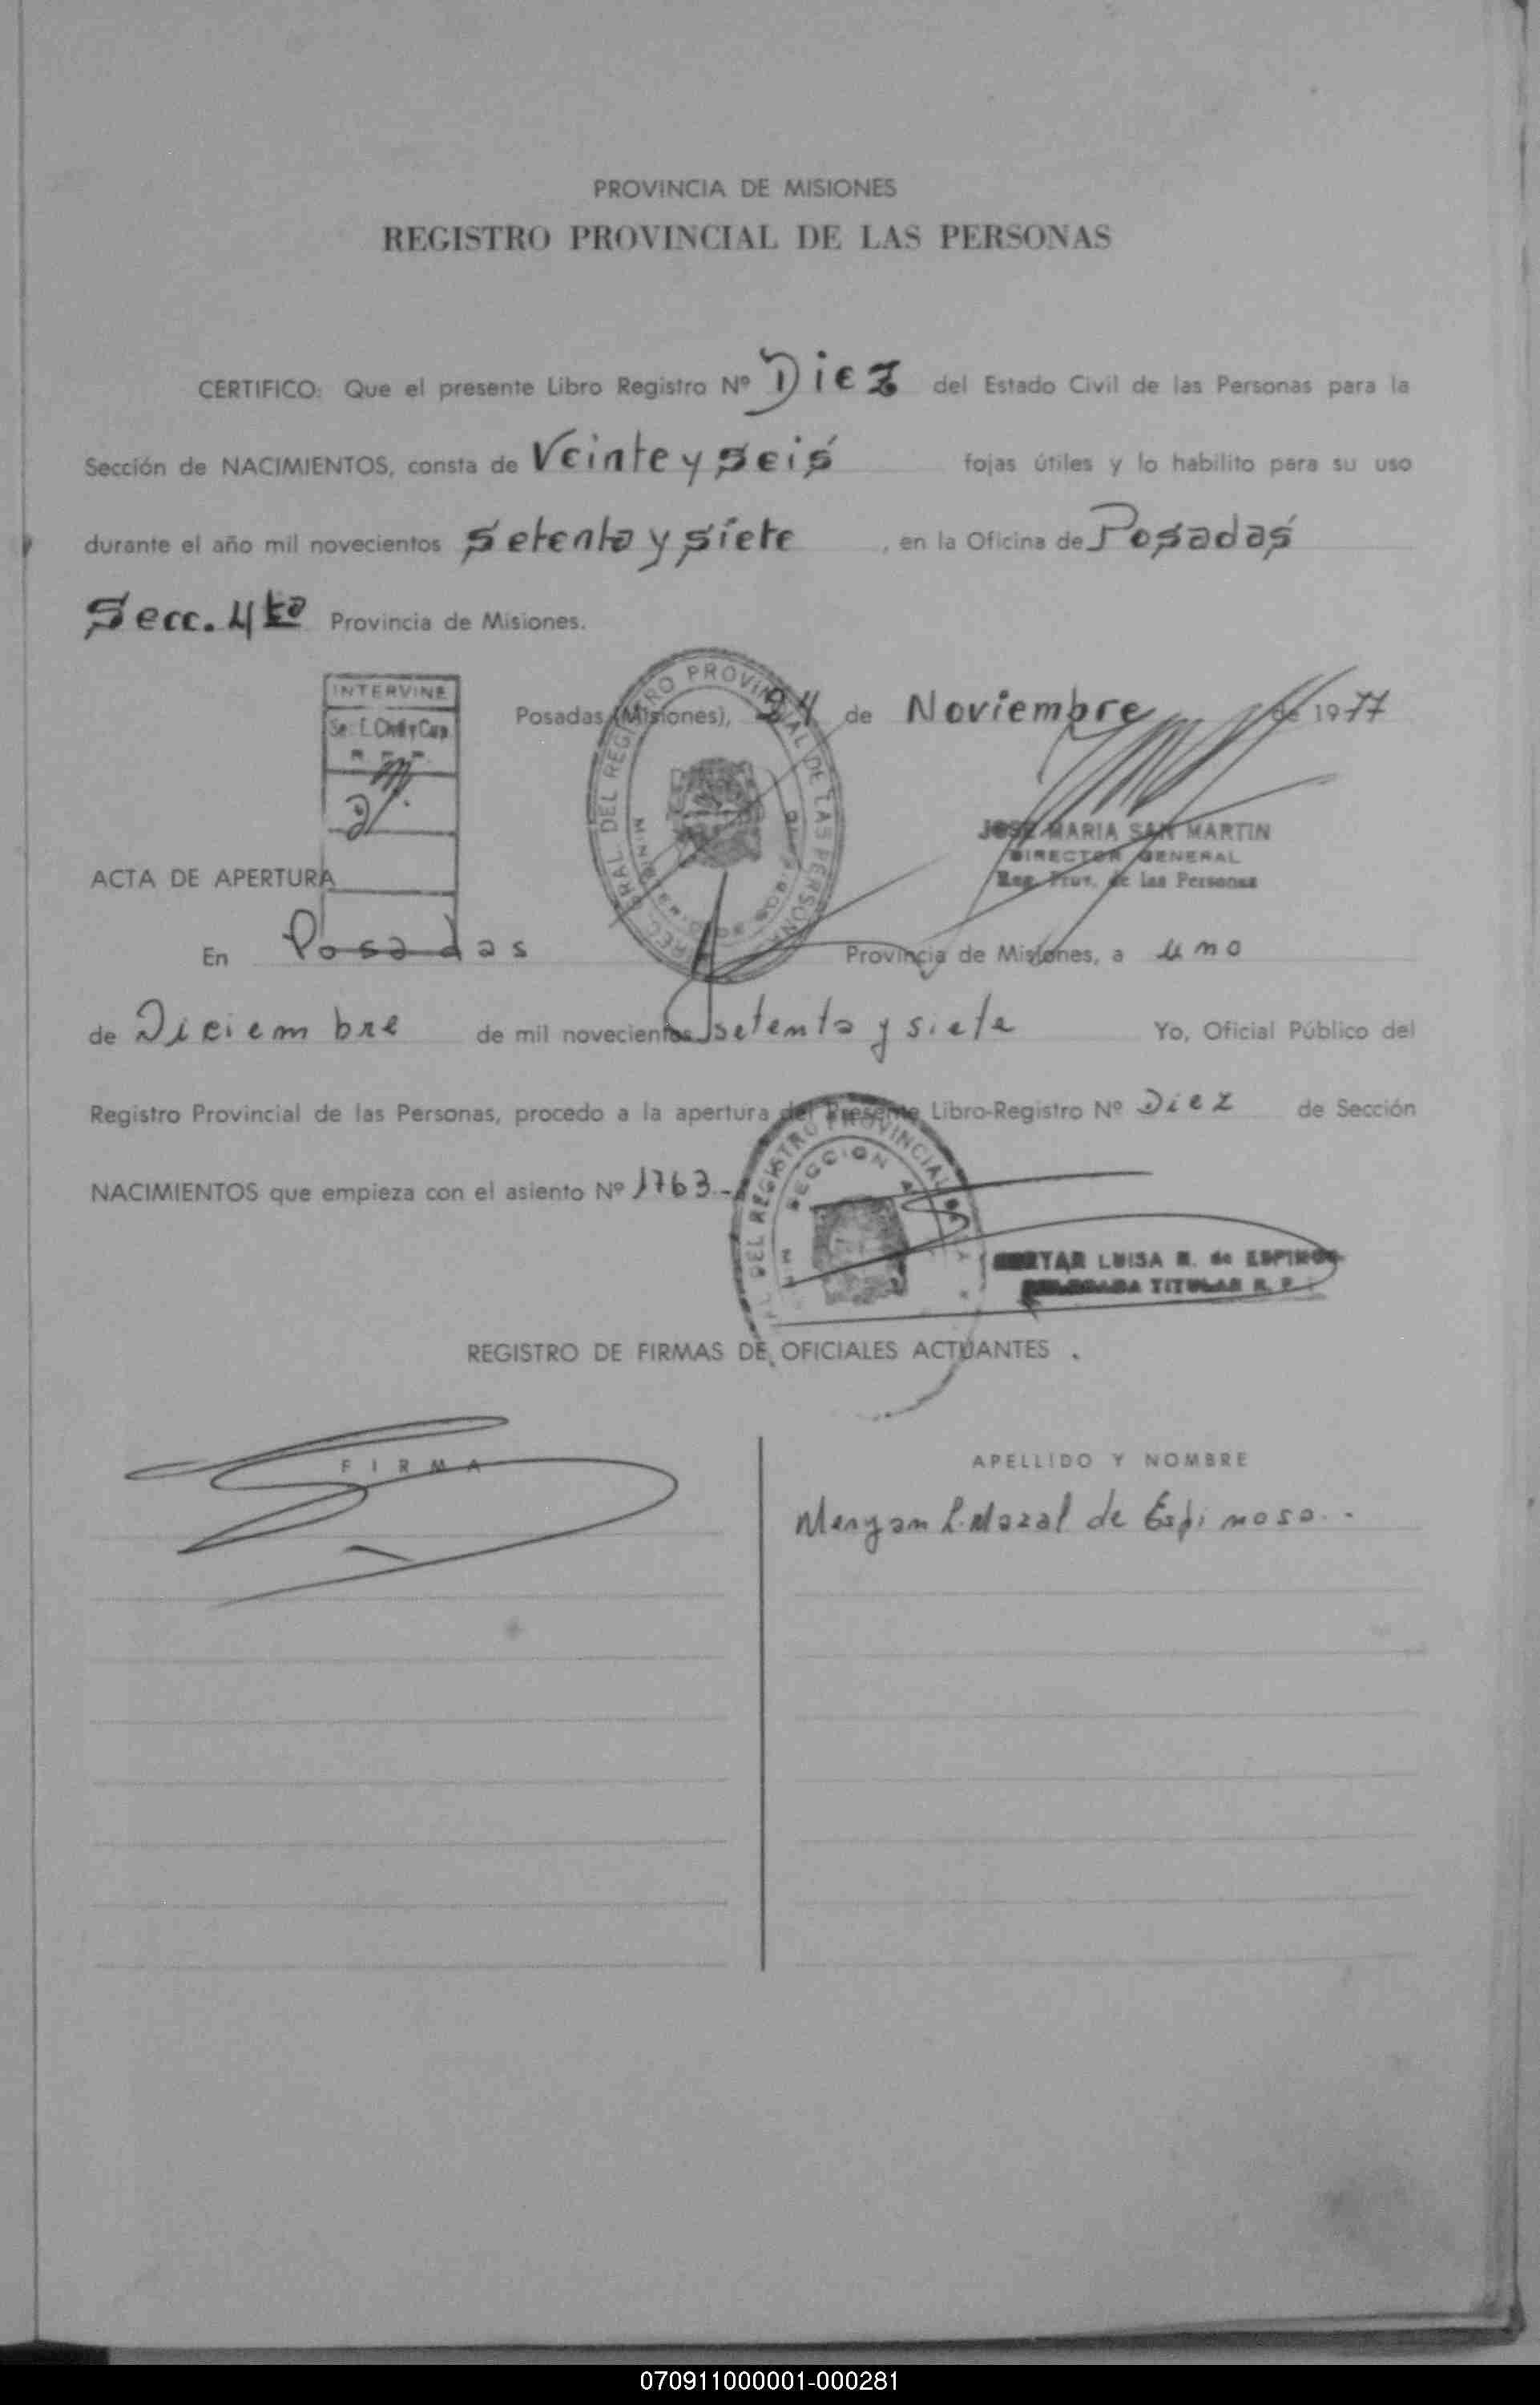 PROVINCIA DE MISIONES
REGISTRO PROVINCIAL DE LAS PERSONAS
CERTIFICO: Que el presente Libro Registro Nº Diez del Estado Civil de las Personas para la
Sección de NACIMIENTOS, consta de Veinte y seis fojas útiles y lo habilito para su uso
durante el año mil novecientos setenta y siete, en la Oficina de Posadas
Secc. 4ta Provincia de Misiones.
INTERVINE
Posadas (Misiones), 24 de Noviembre de 1977
REG. GRAL DEL REGISTRO PROVINCIAL DE LAS PERSONAS
JOSE MARIA SAN MARTIN
DIRECTOR GENERAL
Reg. Prov. de las Personas
ACTA DE APERTURA
En Posadas Provincia de Misiones, a uno
de Diciembre de mil novecientos setenta y siete Yo, Oficial Público del
Registro Provincial de las Personas, procedo a la apertura del Presente Libro-Registro Nº Diez de Sección
NACIMIENTOS que empieza con el asiento Nº 1763.-
DEL REGISTRO PROVINCIAL DE
SECCION
LUISA M. de ESPINOSA
TITULAR R. P.
REGISTRO DE FIRMAS DE OFICIALES ACTUANTES .
FIRMA
APELLIDO Y NOMBRE
L. Mazal de Espinosa.-
070911000001-000281